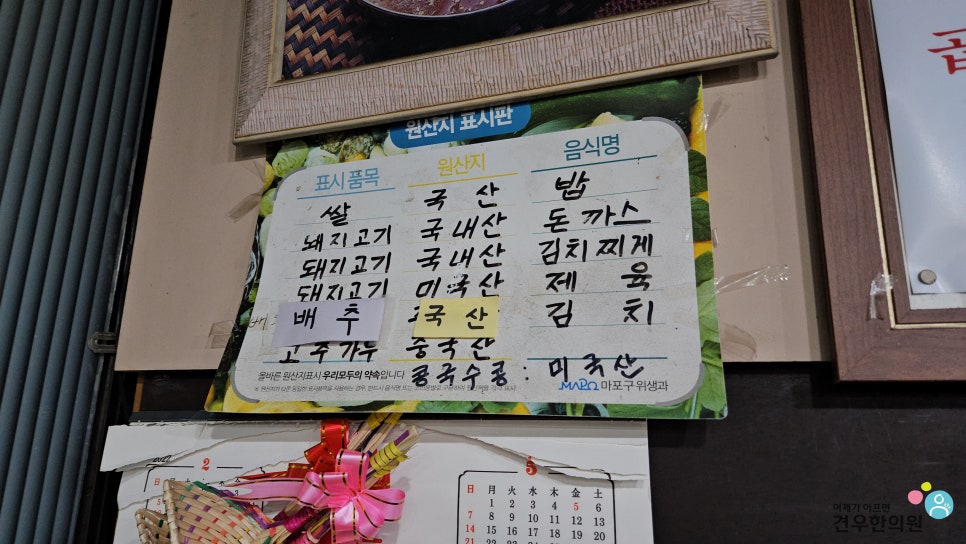 원산지 표시판
표시 품목 원산지 음식명
쌀 국 산 밥
돼지고기 국내산 돈까스
돼지고기 국내산 김치찌게
돼지고기 미국산 제 육
배 추 국 산 김 치
고추가루 중국산
콩국수콩 : 미국산
올바른 원산지표시 우리모두의 약속입니다
MAPO 마포구 위생과
2
5
日 月 火 水 木 金 土
1 2 3 4 5 6
7 8 9 10 11 12 13
14 15 16 17 18 19 20
어깨가 아프면
견우한의원